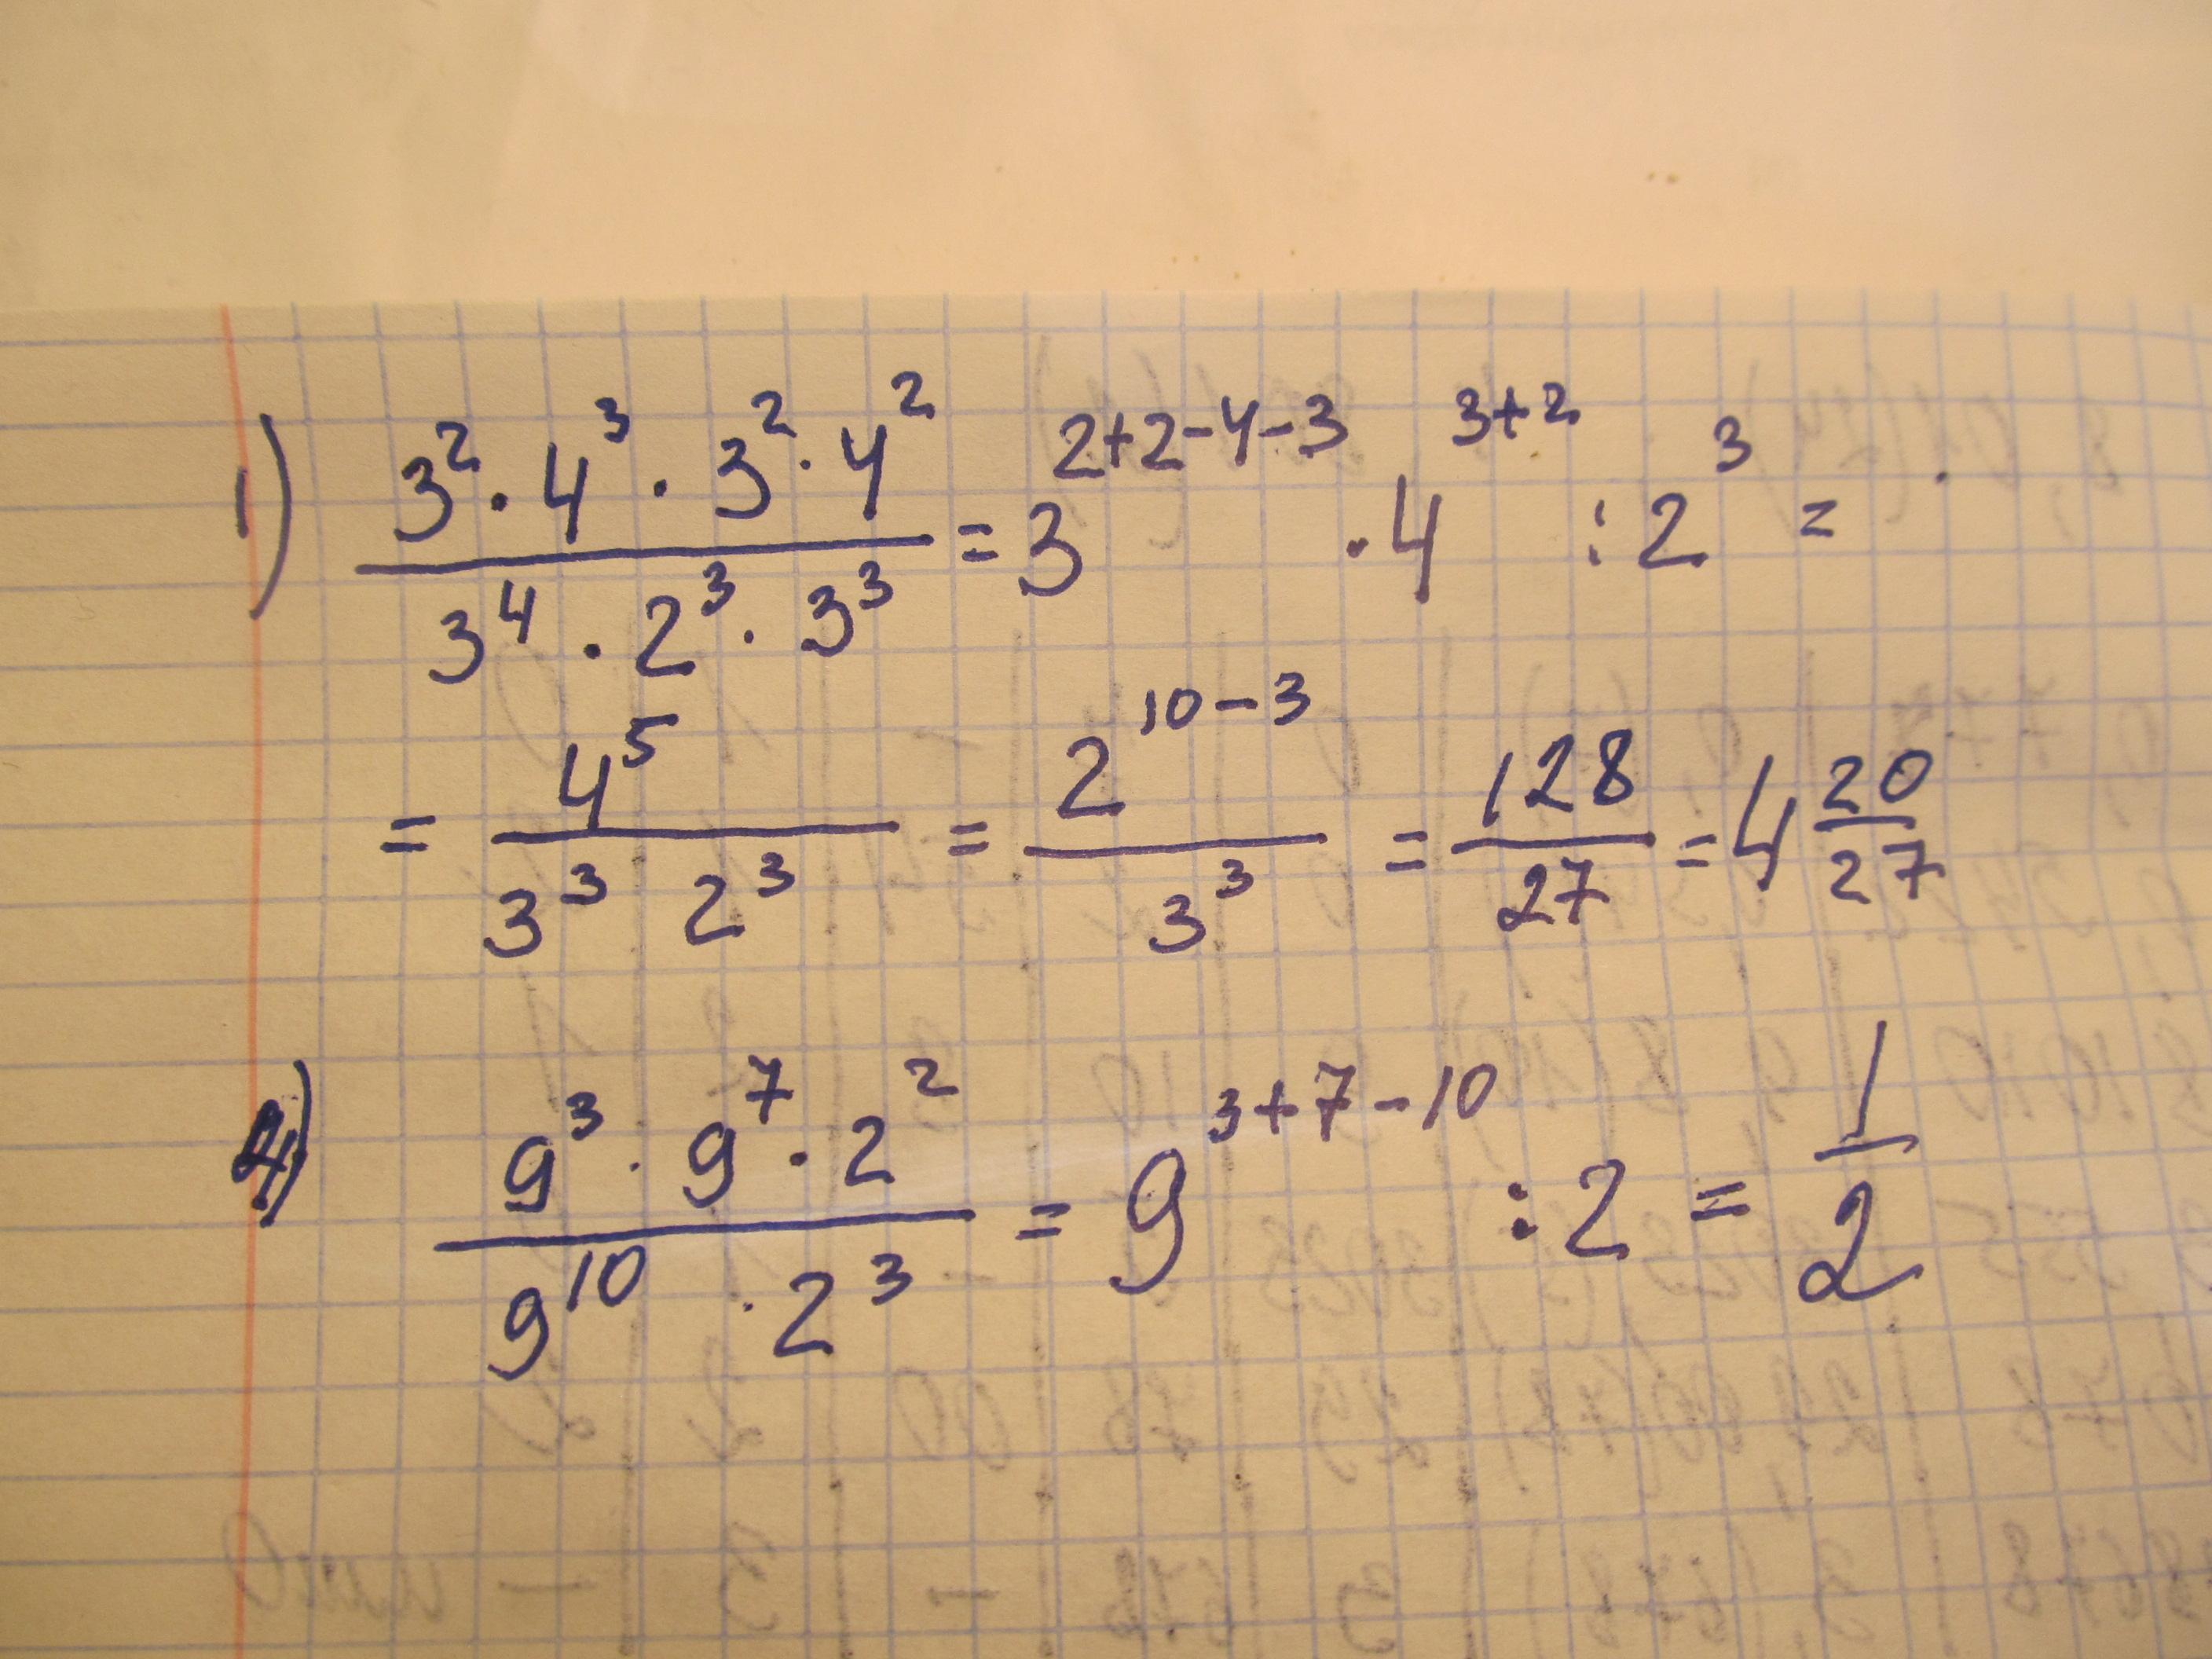 1) (3² · 4³ · 3² · 4²) / (3⁴ · 2³ · 3³) = 3^(2+2-4-3) · 4^(3+2) : 2³ =
= 4⁵ / (3³ 2³) = 2^(10-3) / 3³ = 128/27 = 4 20/27
2) (9³ · 9⁷ · 2²) / (9¹⁰ · 2³) = 9^(3+7-10) : 2 = 1/2